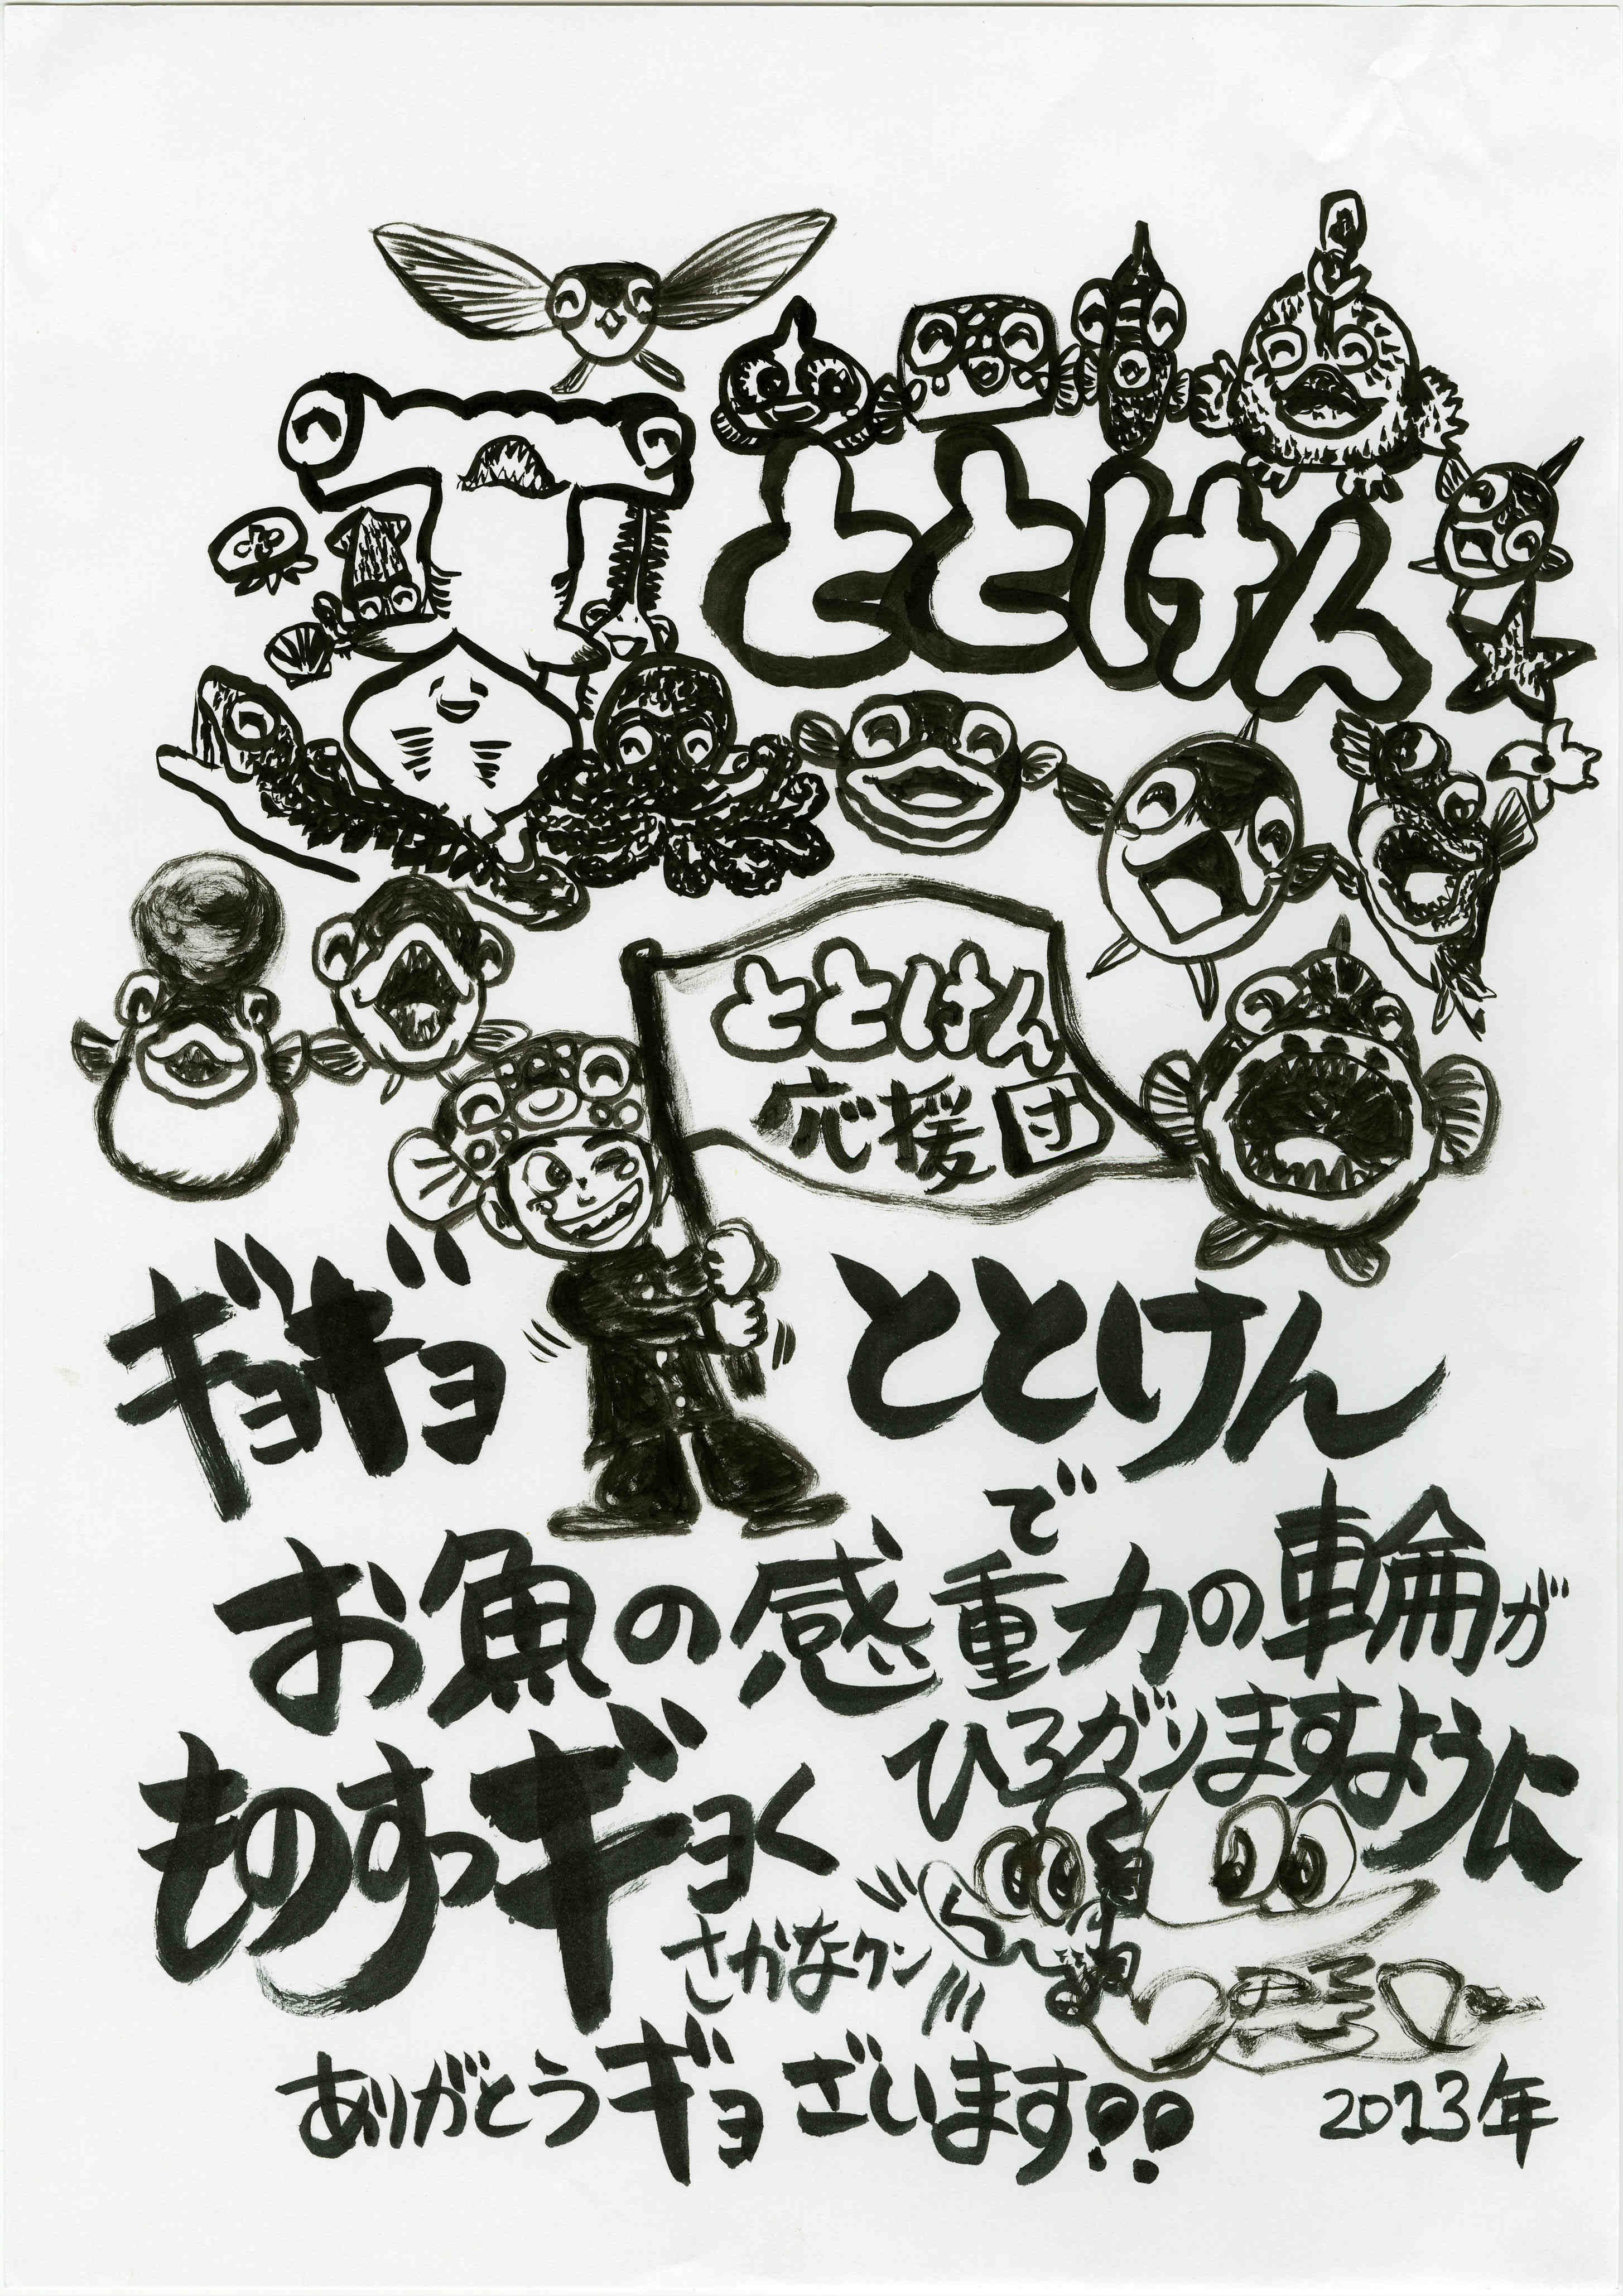 ととけん
ととけん
応援団
ギョギョ
ととけん
で
お魚の感重力の輪が
ひろがりますように
ものすっギョく
さかなクン
ありがとうギョざいます!!
2023年